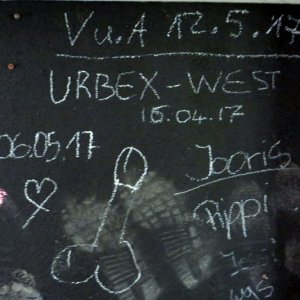 Vu.A 12.5.17
URBEX-WEST
16.04.17
06.05.17
Joris
Pippi
was